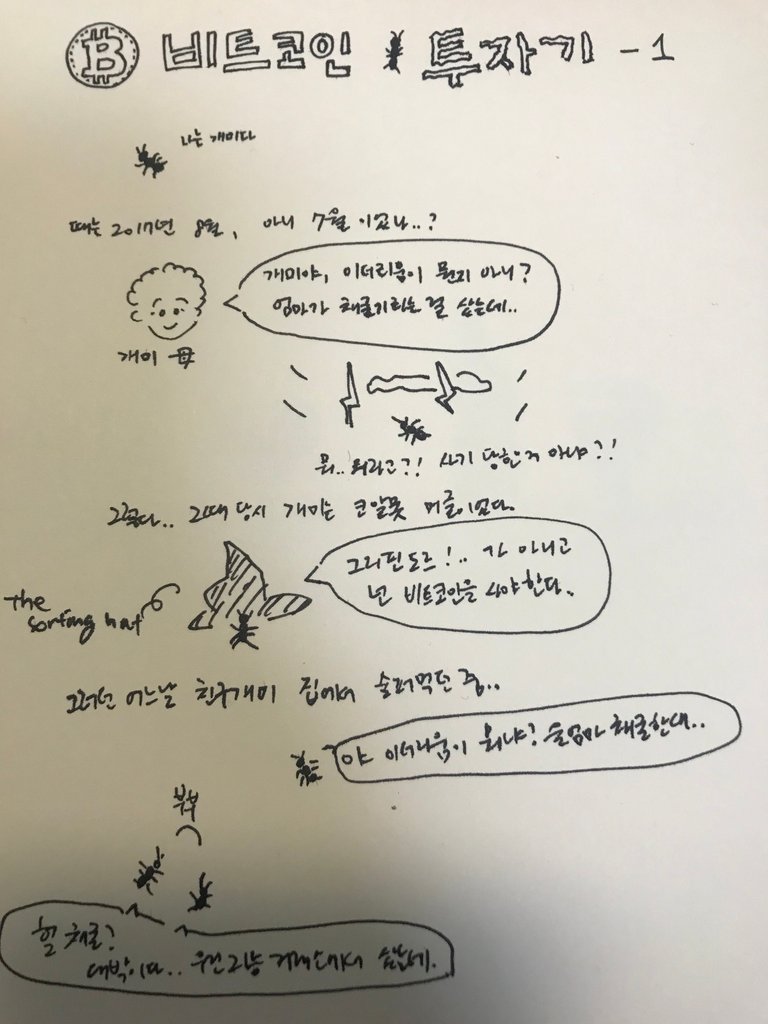 B 비트코인 투자기 - 1
나는 개미다
때는 2017년 8월, 아니 7월이었나..?
개미야, 이더리움이 뭔지 아니?
엄마가 채굴기라는 걸 샀는데..
개미 母
뭐.. 뭐라고?! 사기 당한거 아냐?!
그렇다.. 그때 당시 개미는 코알못 머글이었다.
그리핀도르!.. 가 아니고
넌 비트코인을 사야한다.
the
sorting hat
그러던 어느날 친구개미 집에서 술퍼먹던 중..
야 이더리움이 뭐냐? 울엄마 채굴한대..
부부
헐 채굴?
대박이다.. 우린 그냥 거래소에서 샀는데.